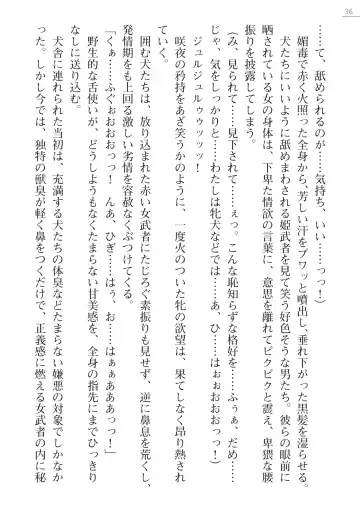 36
「……て、舐められるのが……気持ち、いい……っっ！」
媚毒で赤く火照った全身から、芳しい汗をブワッと噴出し、垂れ下がった黒髪を湿らせる。
犬たちにいいように舐めまわされる姫武者を見て笑う好色そうな男たち。彼らの眼前に
晒されている女の身体は、下卑た情欲の言葉に、意思を離れてビクビクと震え、卑猥な腰
振りを披露してしまう。
（み、見られて……見下されて……ぇっ。こんな恥知らずな格好を……ふぅぁ、だめ……
じゃ、気をしっかりと……わたしは牝犬などでは……あ、ひ……はぉぉおおおっ！）
ジュルジュルゥゥッッッ！
咲夜の矜持をあざ笑うかのように、一度火のついた牝の欲望は、果てしなく昂り熱され
ていく。
囲む犬たちは、放り込まれた赤い女武者にたじろぐ素振りも見せず、逆に鼻息を荒くし、
発情期をも上回る激しい劣情を容赦なくぶつけてくる。
「くぁ……ふぐぉおおおっっ！　んあ、ひぎ……はぅ、お……はぁぁああっっ！」
野生的な舌使いが、どうしようもなくたまらない甘美感を、全身の指先にまでひっきり
なしに送り込む。
犬舎に連れられた当初は、充満する犬たちの体臭などたまらない嫌悪の対象でしかなか
った。しかし今では、独特の獣臭が軽く鼻をつくだけで、正義感に燃える女武者の内に秘